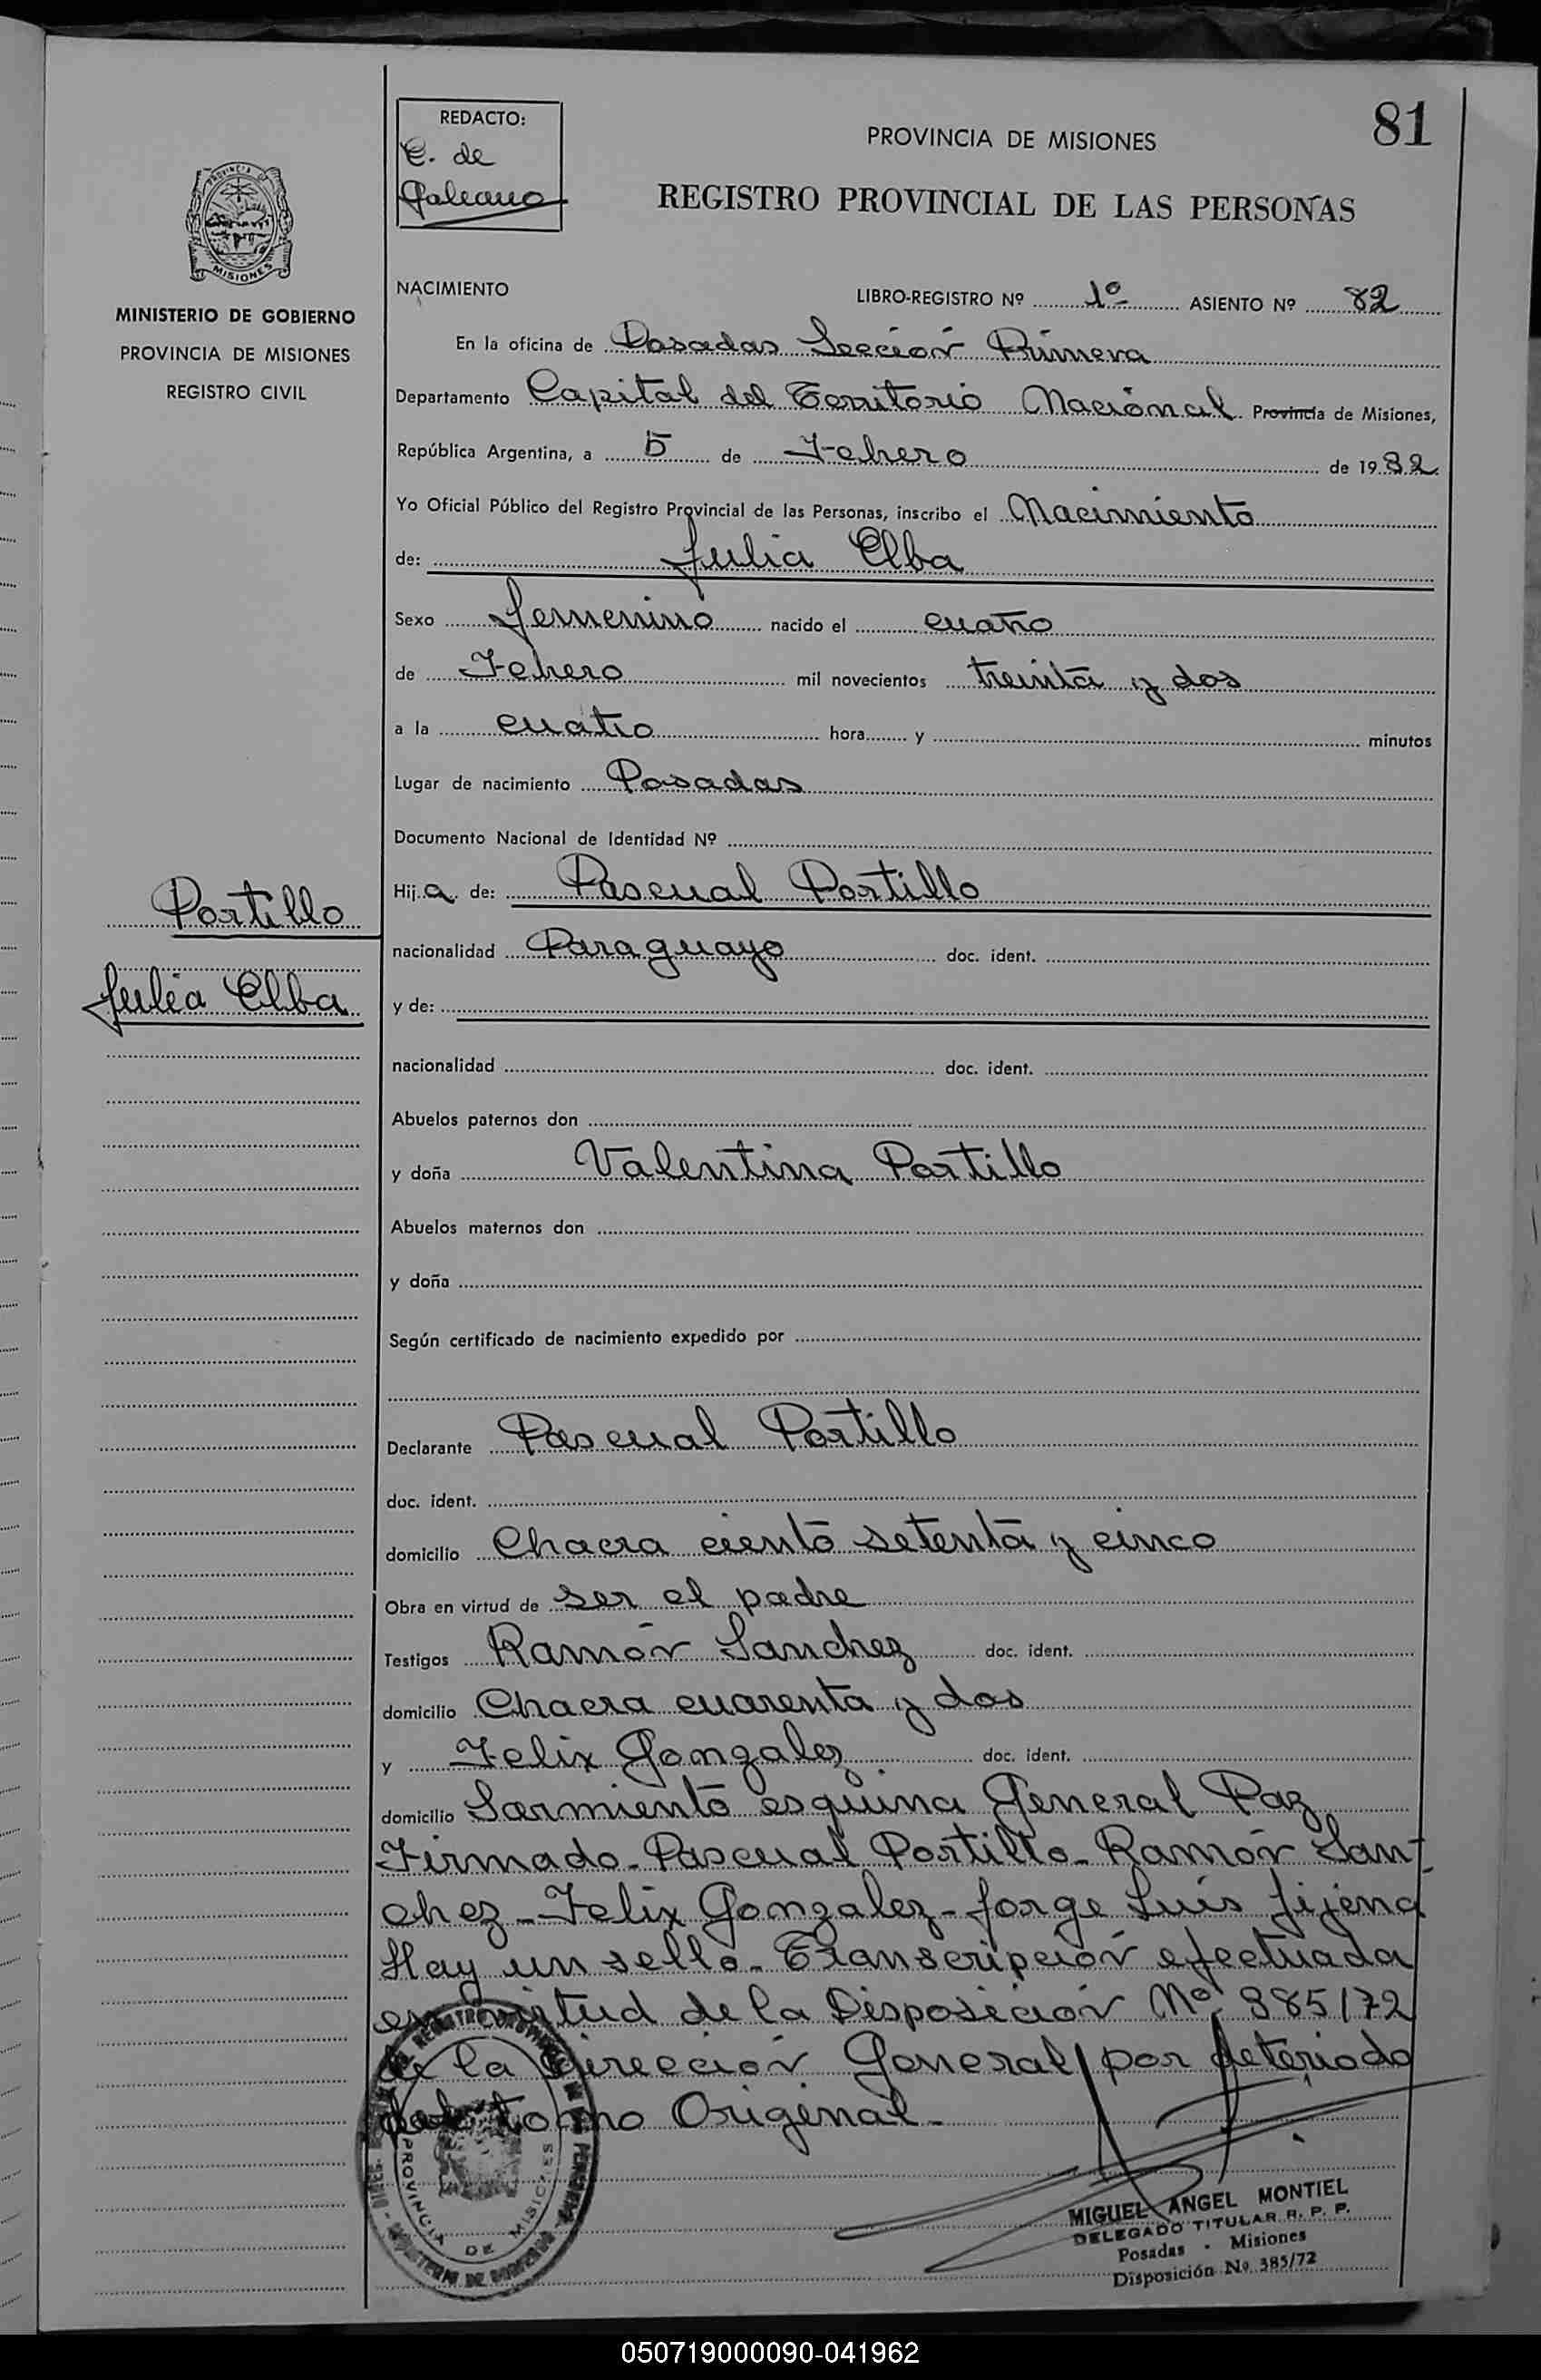 81
REDACTO:
E. de
Galeano
PROVINCIA DE MISIONES
REGISTRO PROVINCIAL DE LAS PERSONAS
MISIONES
MINISTERIO DE GOBIERNO
PROVINCIA DE MISIONES
REGISTRO CIVIL
NACIMIENTO
LIBRO-REGISTRO Nº 1º ASIENTO Nº 82
En la oficina de Posadas Sección Primera
Departamento Capital del Territorio Nacional Provincia de Misiones,
República Argentina, a 5 de Febrero de 1932
Yo Oficial Público del Registro Provincial de las Personas, inscribo el Nacimiento
de: Julia Elba
Sexo femenino nacido el cuatro
de Febrero mil novecientos treinta y dos
a la cuatro hora y minutos
Lugar de nacimiento Posadas
Documento Nacional de Identidad Nº
Portillo
Julia Elba
Hija de: Pascual Portillo
nacionalidad Paraguayo doc. ident.
y de:
nacionalidad doc. ident.
Abuelos paternos don
y doña Valentina Portillo
Abuelos maternos don
y doña
Según certificado de nacimiento expedido por
Declarante Pascual Portillo
doc. ident.
domicilio Chacra ciento setenta y cinco
Obra en virtud de ser el padre
Testigos Ramón Sanchez doc. ident.
domicilio Chacra cuarenta y dos
y Felix Gonzalez doc. ident.
domicilio Sarmiento esquina General Paz
Firmado - Pascual Portillo - Ramón San-
chez - Felix Gonzalez - Jorge Luis Jijena
Hay un sello - Transcripción efectuada
en virtud de la Disposición Nº 385/72
de la Dirección General por deteriodo
del tomo Original -
PROVINCIA DE MISIONES
MIGUEL ANGEL MONTIEL
DELEGADO TITULAR R. P. P.
Posadas - Misiones
Disposición Nº 385/72
050719000090-041962